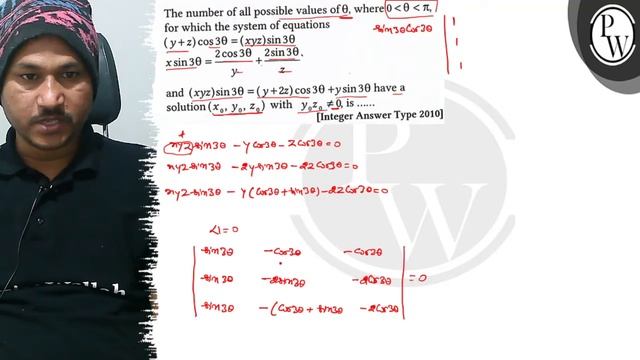 The number of all possible values of θ, where 0 < θ < π,
for which the system of equations
(y+z) cos 3θ = (xyz) sin 3θ
x sin 3θ = 2 cos 3θ / y + 2 sin 3θ / z,
and (xyz) sin 3θ = (y+2z) cos 3θ + y sin 3θ have a
solution (x₀, y₀, z₀) with y₀z₀ ≠ 0, is ......
[Integer Answer Type 2010]
sin3θ cos3θ | 1
1
1
PW
xyz sin3θ - y cos3θ - z cos3θ = 0
xyz sin3θ - 2y sin3θ - 2z cos3θ = 0
xyz sin3θ - y (cos3θ + sin3θ) - 2z cos3θ = 0
Δ = 0
| sin3θ - cos3θ - cos3θ |
| sin3θ - 2sin3θ - 2cos3θ | = 0
| sin3θ - (cos3θ + sin3θ - 2cos3θ |